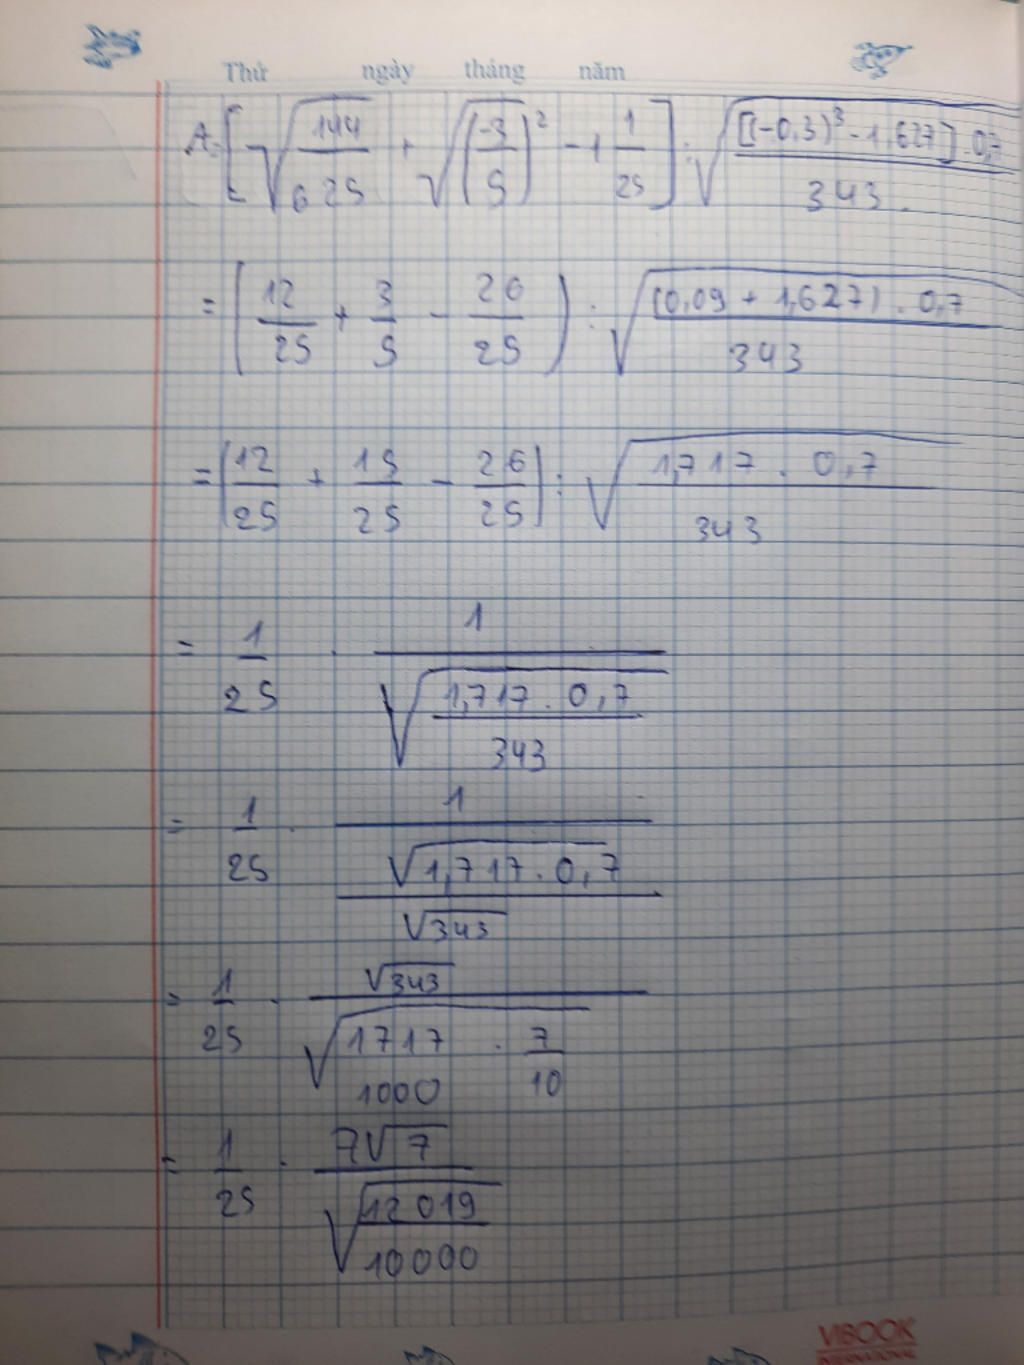 Thứ ngày tháng năm
A = [ √(144/625) + √((-3/5)²) - 1 1/25 ] : √([(-0,3)³ - 1,627] . 0,7 / 343)
= ( 12/25 + 3/5 - 26/25 ) : √((0,09 + 1,627) . 0,7 / 343)
= ( 12/25 + 15/25 - 26/25 ) : √(1,717 . 0,7 / 343)
= 1/25 . 1 / √(1,717 . 0,7 / 343)
= 1/25 . 1 / (√(1,717 . 0,7) / √343)
= 1/25 . √343 / √(1717/1000 . 7/10)
= 1/25 . 7√7 / √(12019/10000)
VIBOOK
INTERNATIONAL